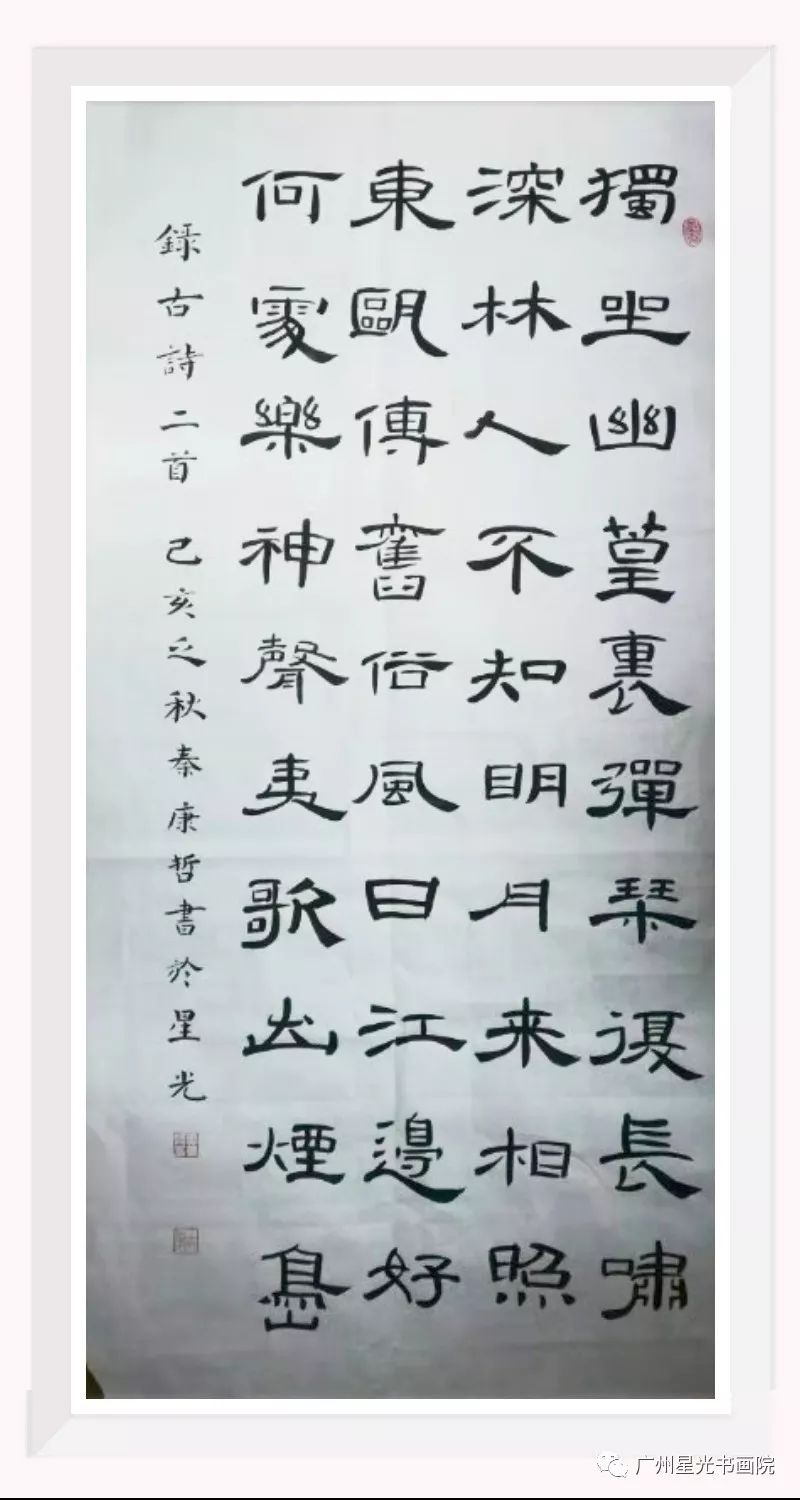 獨坐幽篁裏彈琴復長嘯
深林人不知明月来相照
東甌傳舊俗風日江邊好
何處樂神聲夷歌出煙島
録古詩二首 己亥之秋秦康哲書於星光
广州星光书画院